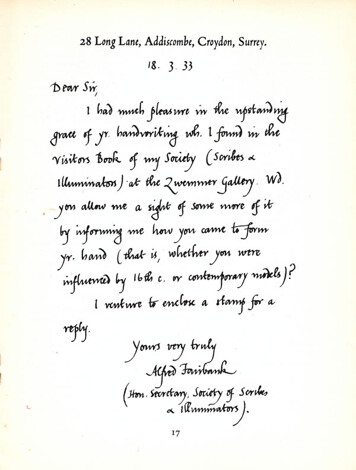 28 Long Lane, Addiscombe, Croydon, Surrey.
18. 3. 33
Dear Sir,
I had much pleasure in the upstanding
grace of yr. handwriting wh. I found in the
Visitors Book of my Society (Scribes &
Illuminators) at the Zwemmer Gallery. Wd.
you allow me a sight of some more of it
by informing me how you came to form
yr. hand (that is, whether you were
influenced by 16th c. or contemporary models)?
I venture to enclose a stamp for a
reply.
Yours very truly
Alfred Fairbank
(Hon. Secretary, Society of Scribes
& Illuminators).
17